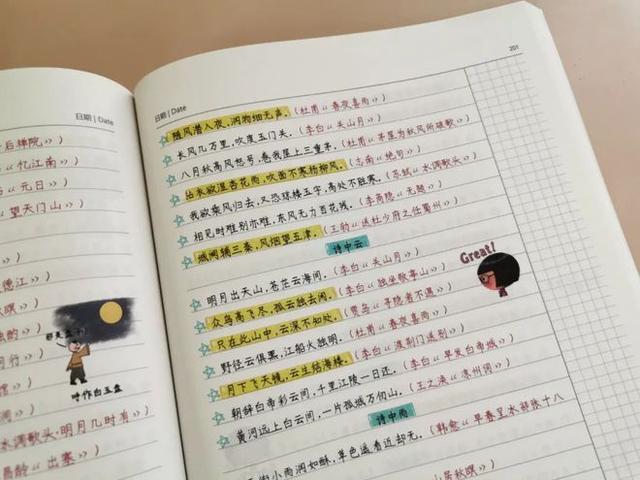 日期 | Date
后禅院》)
《忆江南》)
《元日》)
《望天门山》)
德江》)
暝》)
呼作白玉盘
水调歌头·明月几时有》)
昌龄《出塞》)
201
日期 | Date
随风潜入夜,润物细无声。(杜甫《春夜喜雨》)
长风几万里,吹度玉门关。(李白《关山月》)
八月秋高风怒号,卷我屋上三重茅。(杜甫《茅屋为秋风所破歌》)
沾衣欲湿杏花雨,吹面不寒杨柳风。(志南《绝句》)
我欲乘风归去,又恐琼楼玉宇,高处不胜寒。(苏轼《水调歌头》)
相见时难别亦难,东风无力百花残。(李商隐《无题》)
城阙辅三秦,风烟望五津。(王勃《送杜少府之任蜀州》)
诗中云
明月出天山,苍茫云海间。(李白《关山月》)
Great!
众鸟高飞尽,孤云独去闲。(李白《独坐敬亭山》)
只在此山中,云深不知处。(贾岛《寻隐者不遇》)
野径云俱黑,江船火独明。(杜甫《春夜喜雨》)
月下飞天镜,云生结海楼。(李白《渡荆门送别》)
朝辞白帝彩云间,千里江陵一日还。(李白《早发白帝城》)
黄河远上白云间,一片孤城万仞山。(王之涣《凉州词》)
诗中雨
街小雨润如酥,草色遥看近却无。(韩愈《早春呈水部张十八
山居秋暝》)